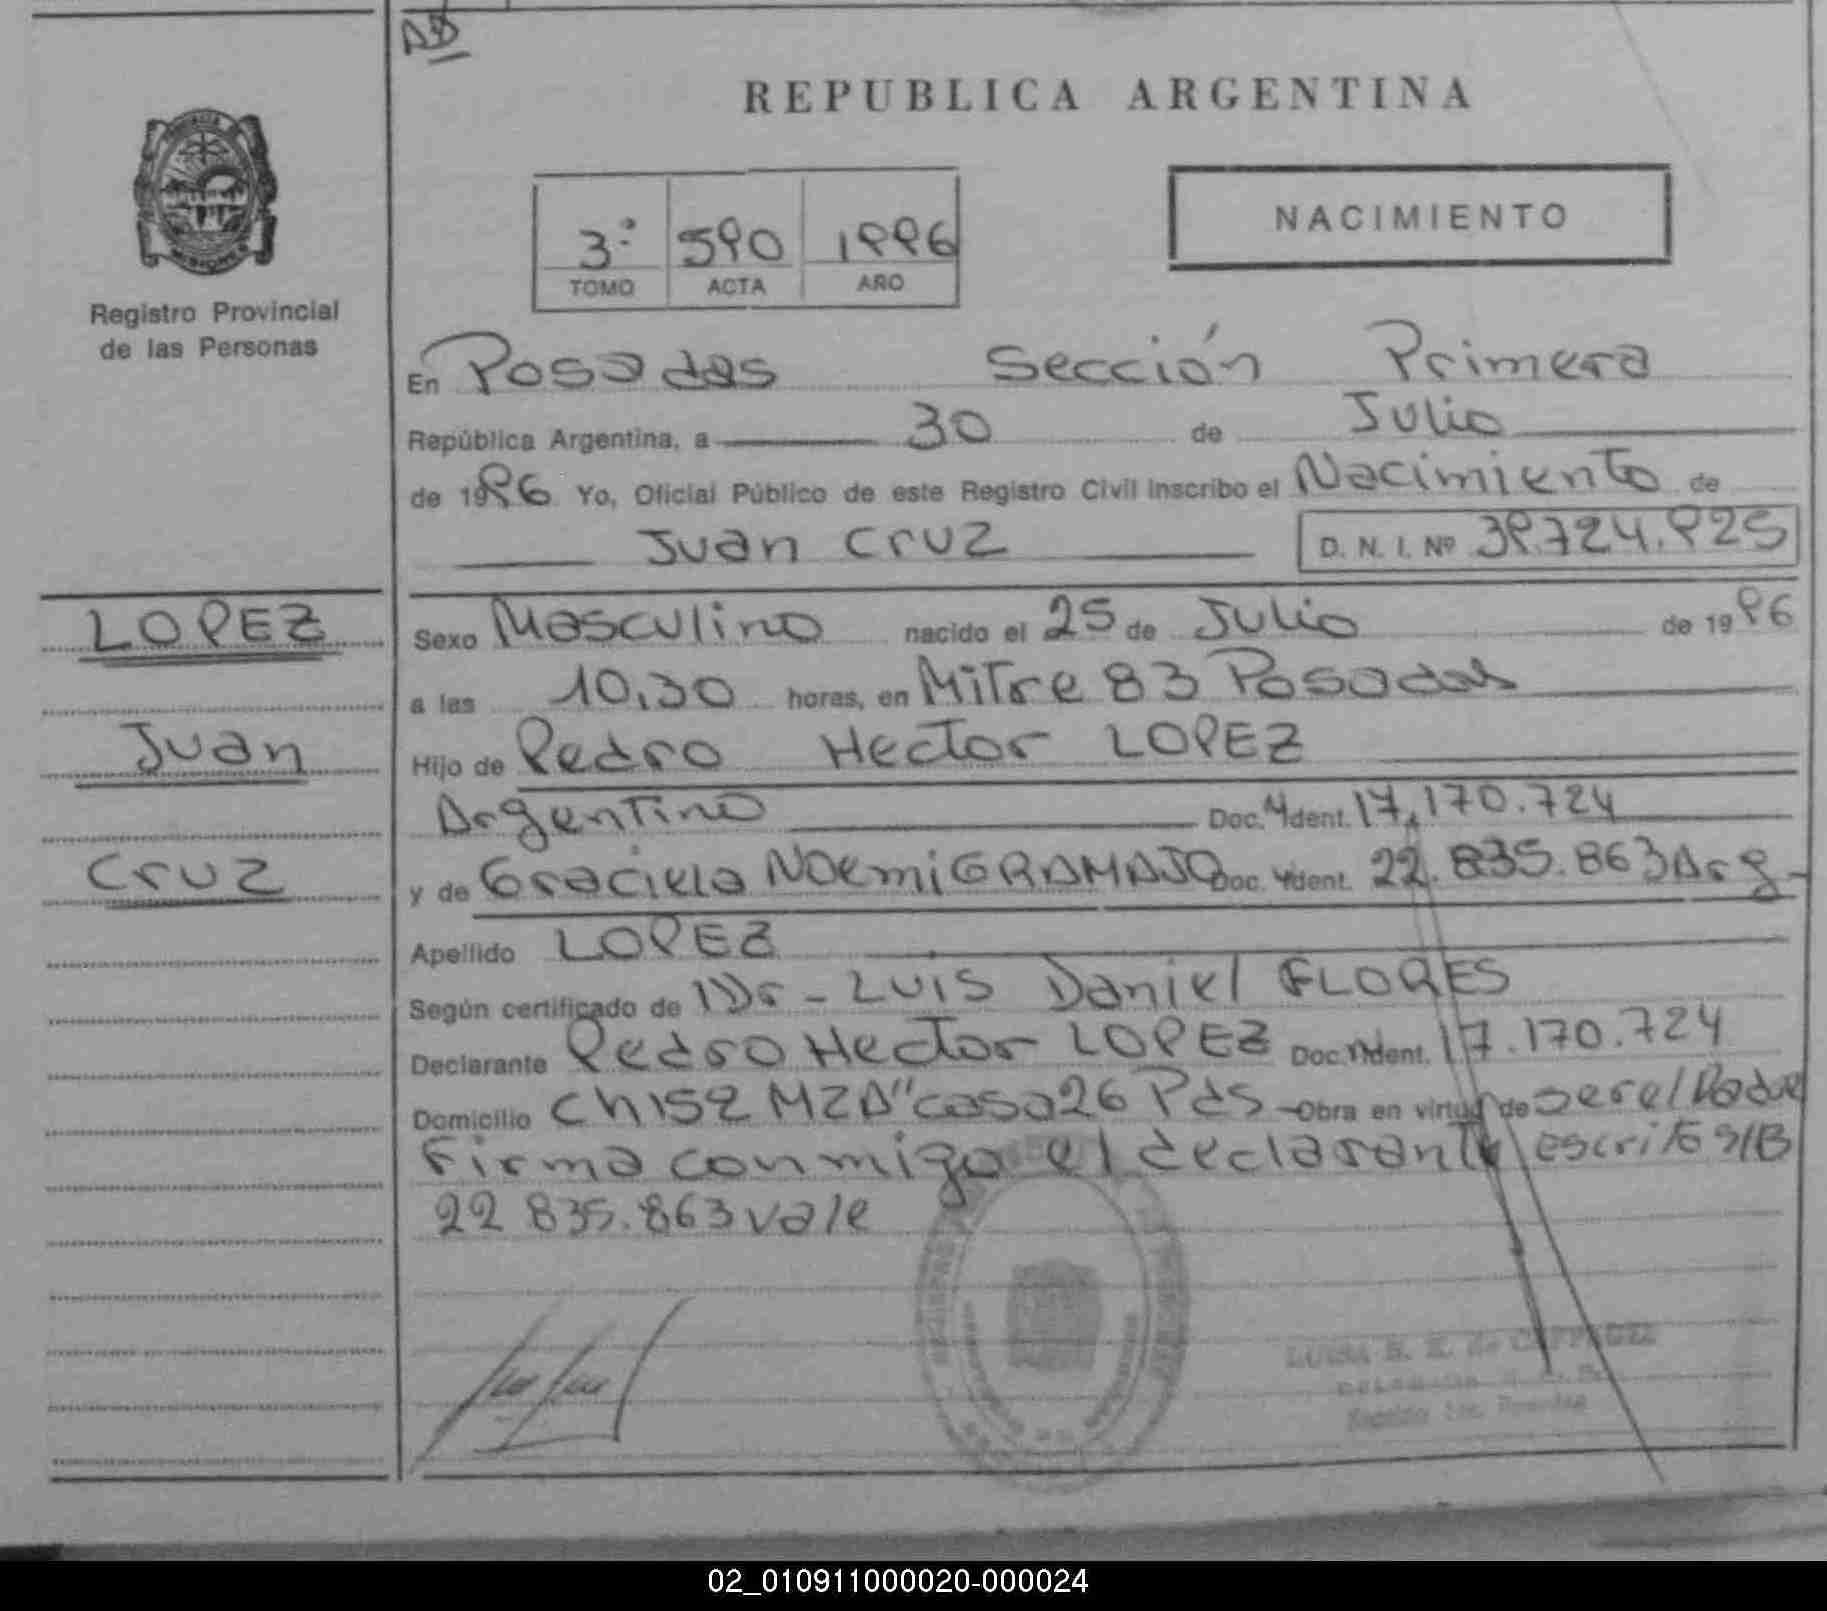 AD
REPUBLICA ARGENTINA
3º 590 1996
TOMO ACTA AÑO
NACIMIENTO
Registro Provincial
de las Personas
En Posadas Sección Primera
República Argentina, a 30 de Julio
de 1996 Yo, Oficial Público de este Registro Civil inscribo el Nacimiento de
Juan Cruz D. N. I. Nº 39.724.925
LOPEZ
Juan
Cruz
Sexo Masculino nacido el 25 de Julio de 1996
a las 10,30 horas, en Mitre 83 Posadas
Hijo de Pedro Hector LOPEZ
Argentino Doc. Ident. 17.170.724
y de Graciela Noemi GRAMAJO Doc. Ident. 22.835.863 Arg
Apellido LOPEZ
Según certificado de Dr - LUIS Daniel FLORES
Declarante Pedro Hector LOPEZ Doc. Ident. 17.170.724
Domicilio Ch 152 MZ A" casa 26 Pds - Obra en virtud de ser el Padre
Firma conmigo el declarante escrito S/B
22 835.863 vale
LUISA E. E. de
02_010911000020-000024